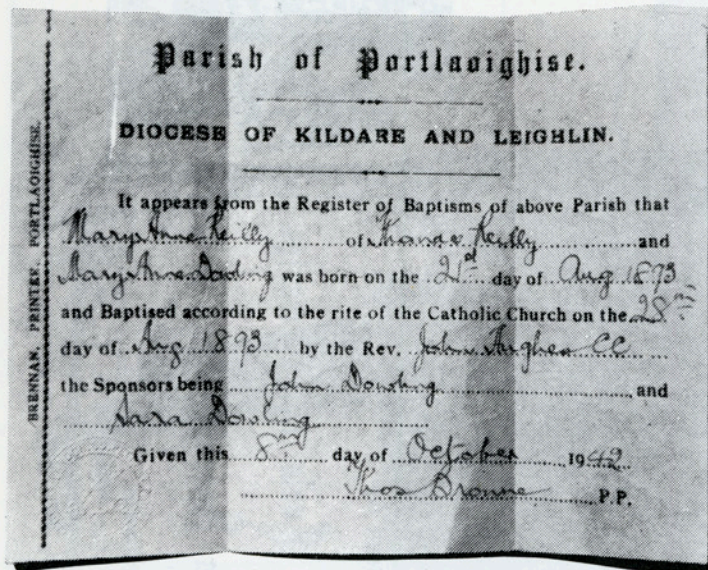 Parish of Portlaoighise.
DIOCESE OF KILDARE AND LEIGHLIN.
It appears from the Register of Baptisms of above Parish that
Mary Anne Reilly of Thomas Reilly and
Mary Anne Dowling was born on the day of Aug 1893
and Baptised according to the rite of the Catholic Church on the 28th
day of Aug 1893 by the Rev. John Hughes CC
the Sponsors being John Dowling and
Sara Dowling
Given this 8th day of October 1942
Thos Browne P.P.
BRENNAN, PRINTER, PORTLAOIGHISE.